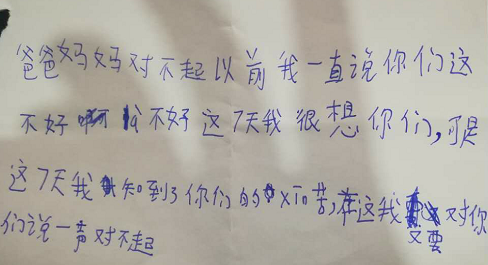 爸爸妈妈对不起以前我一直说你们这
不好啊 不好这7天我很想你们,可是
这7天我知到了你们的 xin苦,在这我又要对你
们说一声对不起